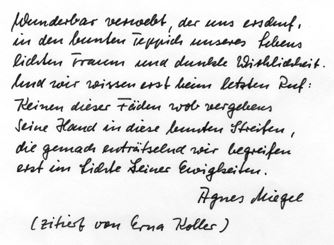 Wunderbar verwebt, der uns erschuf,
in den bunten Teppich unseres Lebens
lichten Traum und dunkle Wirklichkeit.
Und wir wissen erst beim letzten Ruf:
Keinen dieser Fäden wob vergebens
Seine Hand in diese bunten Streifen,
die gemach enträtselnd wir begreifen
erst im Lichte Seiner Ewigkeiten.
Agnes Miegel
(zitiert von Erna Koller)